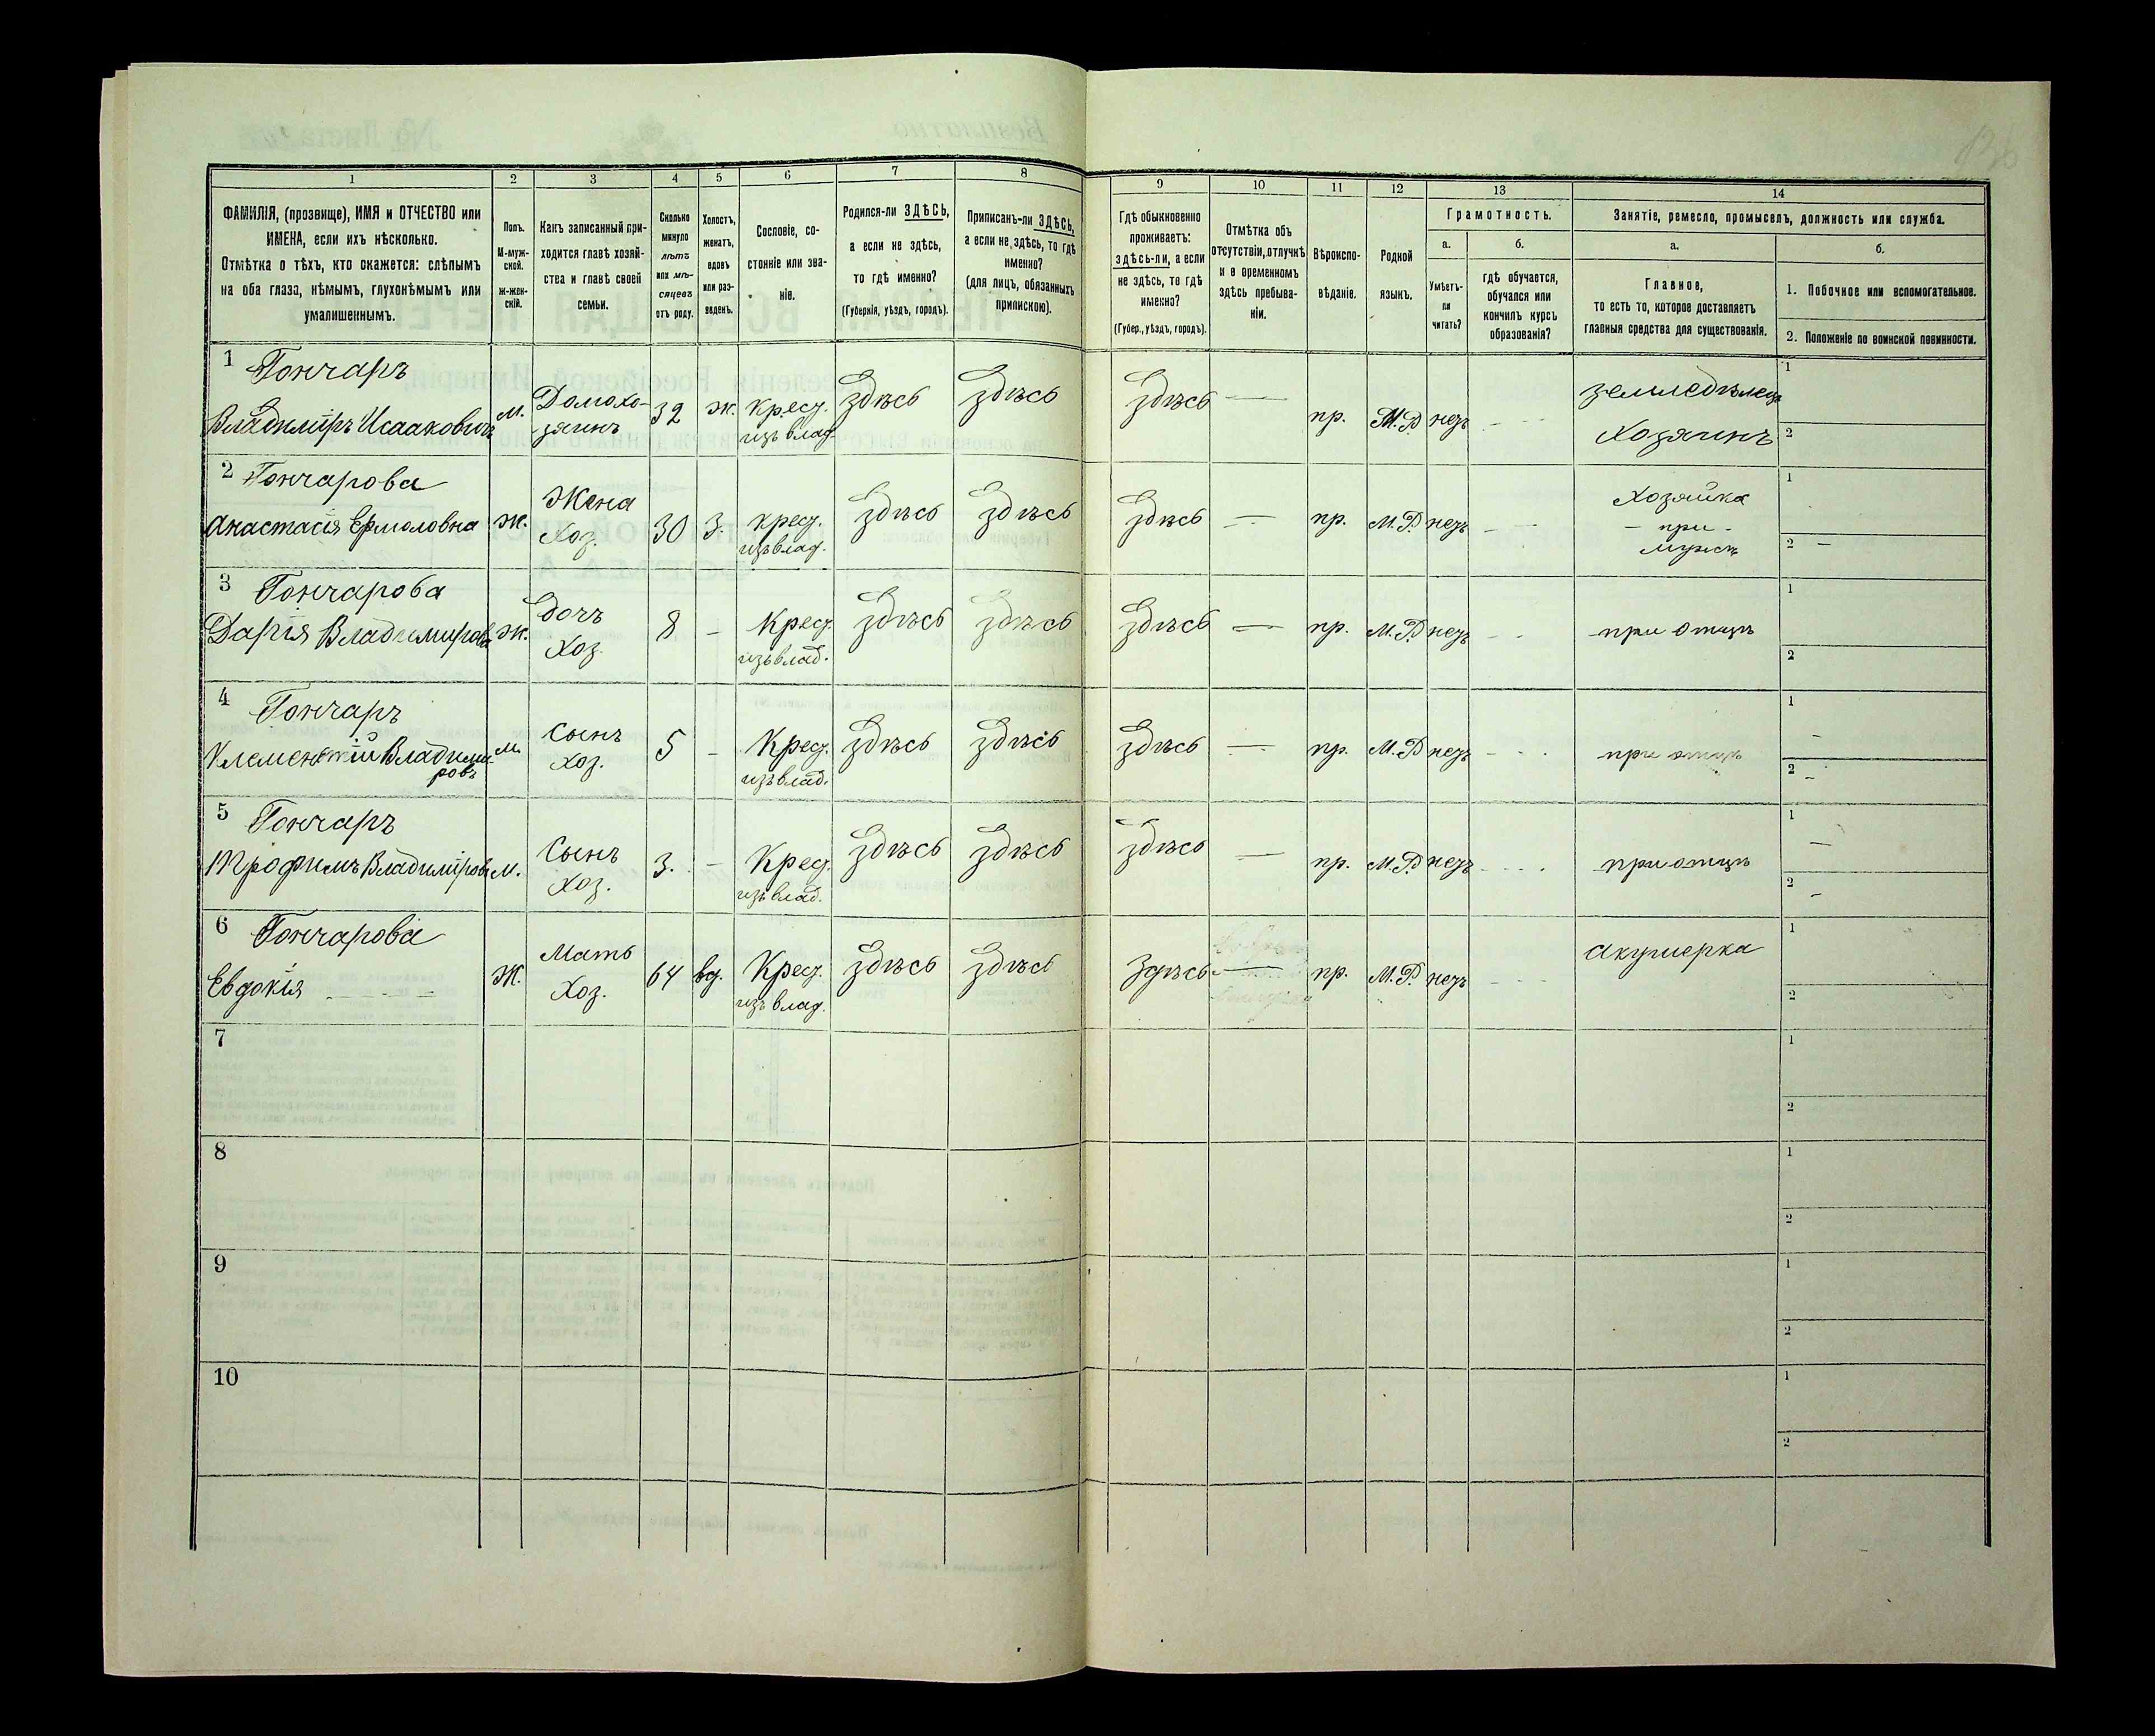 1 2 3 4 5 6 7 8 9 10 11 12 13 14
ФАМИЛІЯ, (прозвище), ИМЯ и ОТЧЕСТВО или
ИМЕНА, если ихъ нѣсколько.
Отмѣтка о тѣхъ, кто окажется: слѣпымъ
на оба глаза, нѣмымъ, глухонѣмымъ или
умалишеннымъ.
Полъ.
М-муж-
ской.
Ж-жен-
скій.
Какъ записанный при-
ходится главѣ хозяй-
ства и главѣ своей
семьи.
Сколько
минуло
лѣтъ
или мѣ-
сяцевъ
отъ роду.
Холостъ,
женатъ,
вдовъ
или раз-
веденъ.
Сословіе, со-
стояніе или зва-
ніе.
Родился-ли ЗДѢСЬ,
а если не здѣсь,
то гдѣ именно?
(Губернія, уѣздъ, городъ).
Приписанъ-ли ЗДѢСЬ,
а если не здѣсь, то гдѣ
именно?
(для лицъ, обязанныхъ
припискою).
Гдѣ обыкновенно
проживаетъ:
здѣсь-ли, а если
не здѣсь, то гдѣ
именно?
(Губер., уѣздъ, городъ).
Отмѣтка объ
отсутствіи, отлучкѣ
и о временномъ
здѣсь пребыва-
ніи.
Вѣроиспо-
вѣданіе.
Родной
языкъ.
Грамотность.
а.
Умѣетъ-
ли
читать?
б.
гдѣ обучается,
обучался или
кончилъ курсъ
образованія?
Занятіе, ремесло, промыселъ, должность или служба.
а.
Главное,
то есть то, которое доставляетъ
главныя средства для существованія.
б.
1. Побочное или вспомогательное.
2. Положеніе по воинской повинности.
1 Гончаръ
Владиміръ Исааковичъ
м.
Домохо-
зяинъ
32
ж.
крест.
изъ влад.
здѣсь
здѣсь
здѣсь —
пр.
М.Р.
нетъ
земледѣлецъ
Хозяинъ
1
2
2 Гончарова
Анастасія Ермоловна
ж.
Жена
Хоз.
30
З.
крест.
изъ влад.
здѣсь
здѣсь
здѣсь —
пр.
М.Р.
нетъ
Хозяйка
при
мужѣ
1
2 —
3 Гончарова
Дарія Владимирова
ж.
Дочь
Хоз.
8
—
Крест.
изъ влад.
здѣсь
здѣсь
здѣсь —
пр.
М.Р.
нетъ
при отцѣ
1
2
4 Гончаръ
Клементій Владими-
ровъ
м.
Сынъ
хоз.
5
—
Крест.
изъ влад.
здѣсь
здѣсь
здѣсь —
пр.
М.Р.
нетъ
при отцѣ
1
2
5 Гончаръ
Трофимъ Владиміровъ
м.
Сынъ
Хоз.
3.
—
Крест.
изъ влад.
здѣсь
здѣсь
здѣсь —
пр.
М.Р.
нетъ
при отцѣ
1
2
6 Гончарова
Евдокія
Ж.
Мать
Хоз.
64
вд.
Крест.
изъ влад.
здѣсь
здѣсь
здѣсь —
пр.
М.Р.
нетъ
акушерка
1
2
7
1
2
8
1
2
9
1
2
10
1
2